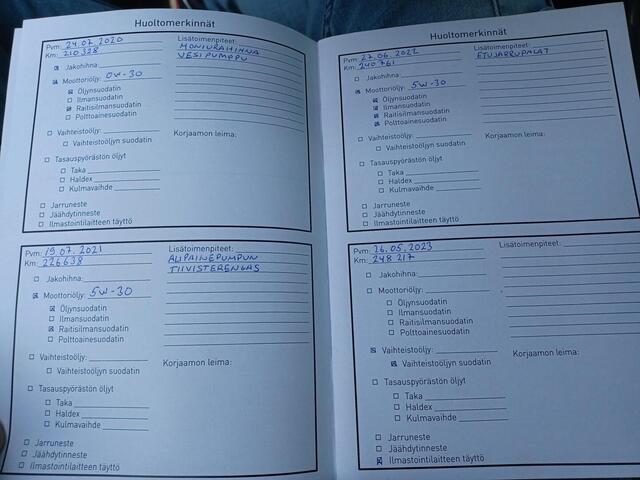 Huoltomerkinnät
Pvm: 24.07.2020
Km: 210328
Lisätoimenpiteet:
MONIURAHIHNA
VESIPUMPPU
Jakohihna:
Moottoriöljy: 0W-30
Öljynsuodatin
Ilmansuodatin
Raitisilmansuodatin
Polttoainesuodatin
Vaihteistoöljy:
Vaihteistoöljyn suodatin
Korjaamon leima:
Tasauspyörästön öljyt
Taka
Haldex
Kulmavaihde
Jarruneste
Jäähdytinneste
Ilmastointilaitteen täyttö
Pvm: 19.07.2021
Km: 226638
Lisätoimenpiteet:
ALIPAINEPUMPUN
TIIVISTERENGAS
Jakohihna:
Moottoriöljy: 5W-30
Öljynsuodatin
Ilmansuodatin
Raitisilmansuodatin
Polttoainesuodatin
Vaihteistoöljy:
Vaihteistoöljyn suodatin
Korjaamon leima:
Tasauspyörästön öljyt
Taka
Haldex
Kulmavaihde
Jarruneste
Jäähdytinneste
Ilmastointilaitteen täyttö
Huoltomerkinnät
Pvm: 27.06.2022
Km: 240761
Lisätoimenpiteet:
ETUJARRUPALAT
Jakohihna:
Moottoriöljy: 5W-30
Öljynsuodatin
Ilmansuodatin
Raitisilmansuodatin
Polttoainesuodatin
Vaihteistoöljy:
Vaihteistoöljyn suodatin
Korjaamon leima:
Tasauspyörästön öljyt
Taka
Haldex
Kulmavaihde
Jarruneste
Jäähdytinneste
Ilmastointilaitteen täyttö
Pvm: 26.05.2023
Km: 248217
Lisätoimenpiteet:
Jakohihna:
Moottoriöljy:
Öljynsuodatin
Ilmansuodatin
Raitisilmansuodatin
Polttoainesuodatin
Vaihteistoöljy:
Vaihteistoöljyn suodatin
Korjaamon leima:
Tasauspyörästön öljyt
Taka
Haldex
Kulmavaihde
Jarruneste
Jäähdytinneste
Ilmastointilaitteen täyttö